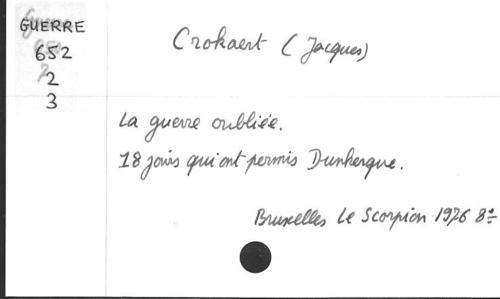 GUERRE
652
2
3
Crokaert (Jacques)
La guerre oubliée.
18 jours qui ont permis Dunkerque.
Bruxelles Le Scorpion 1976 8º